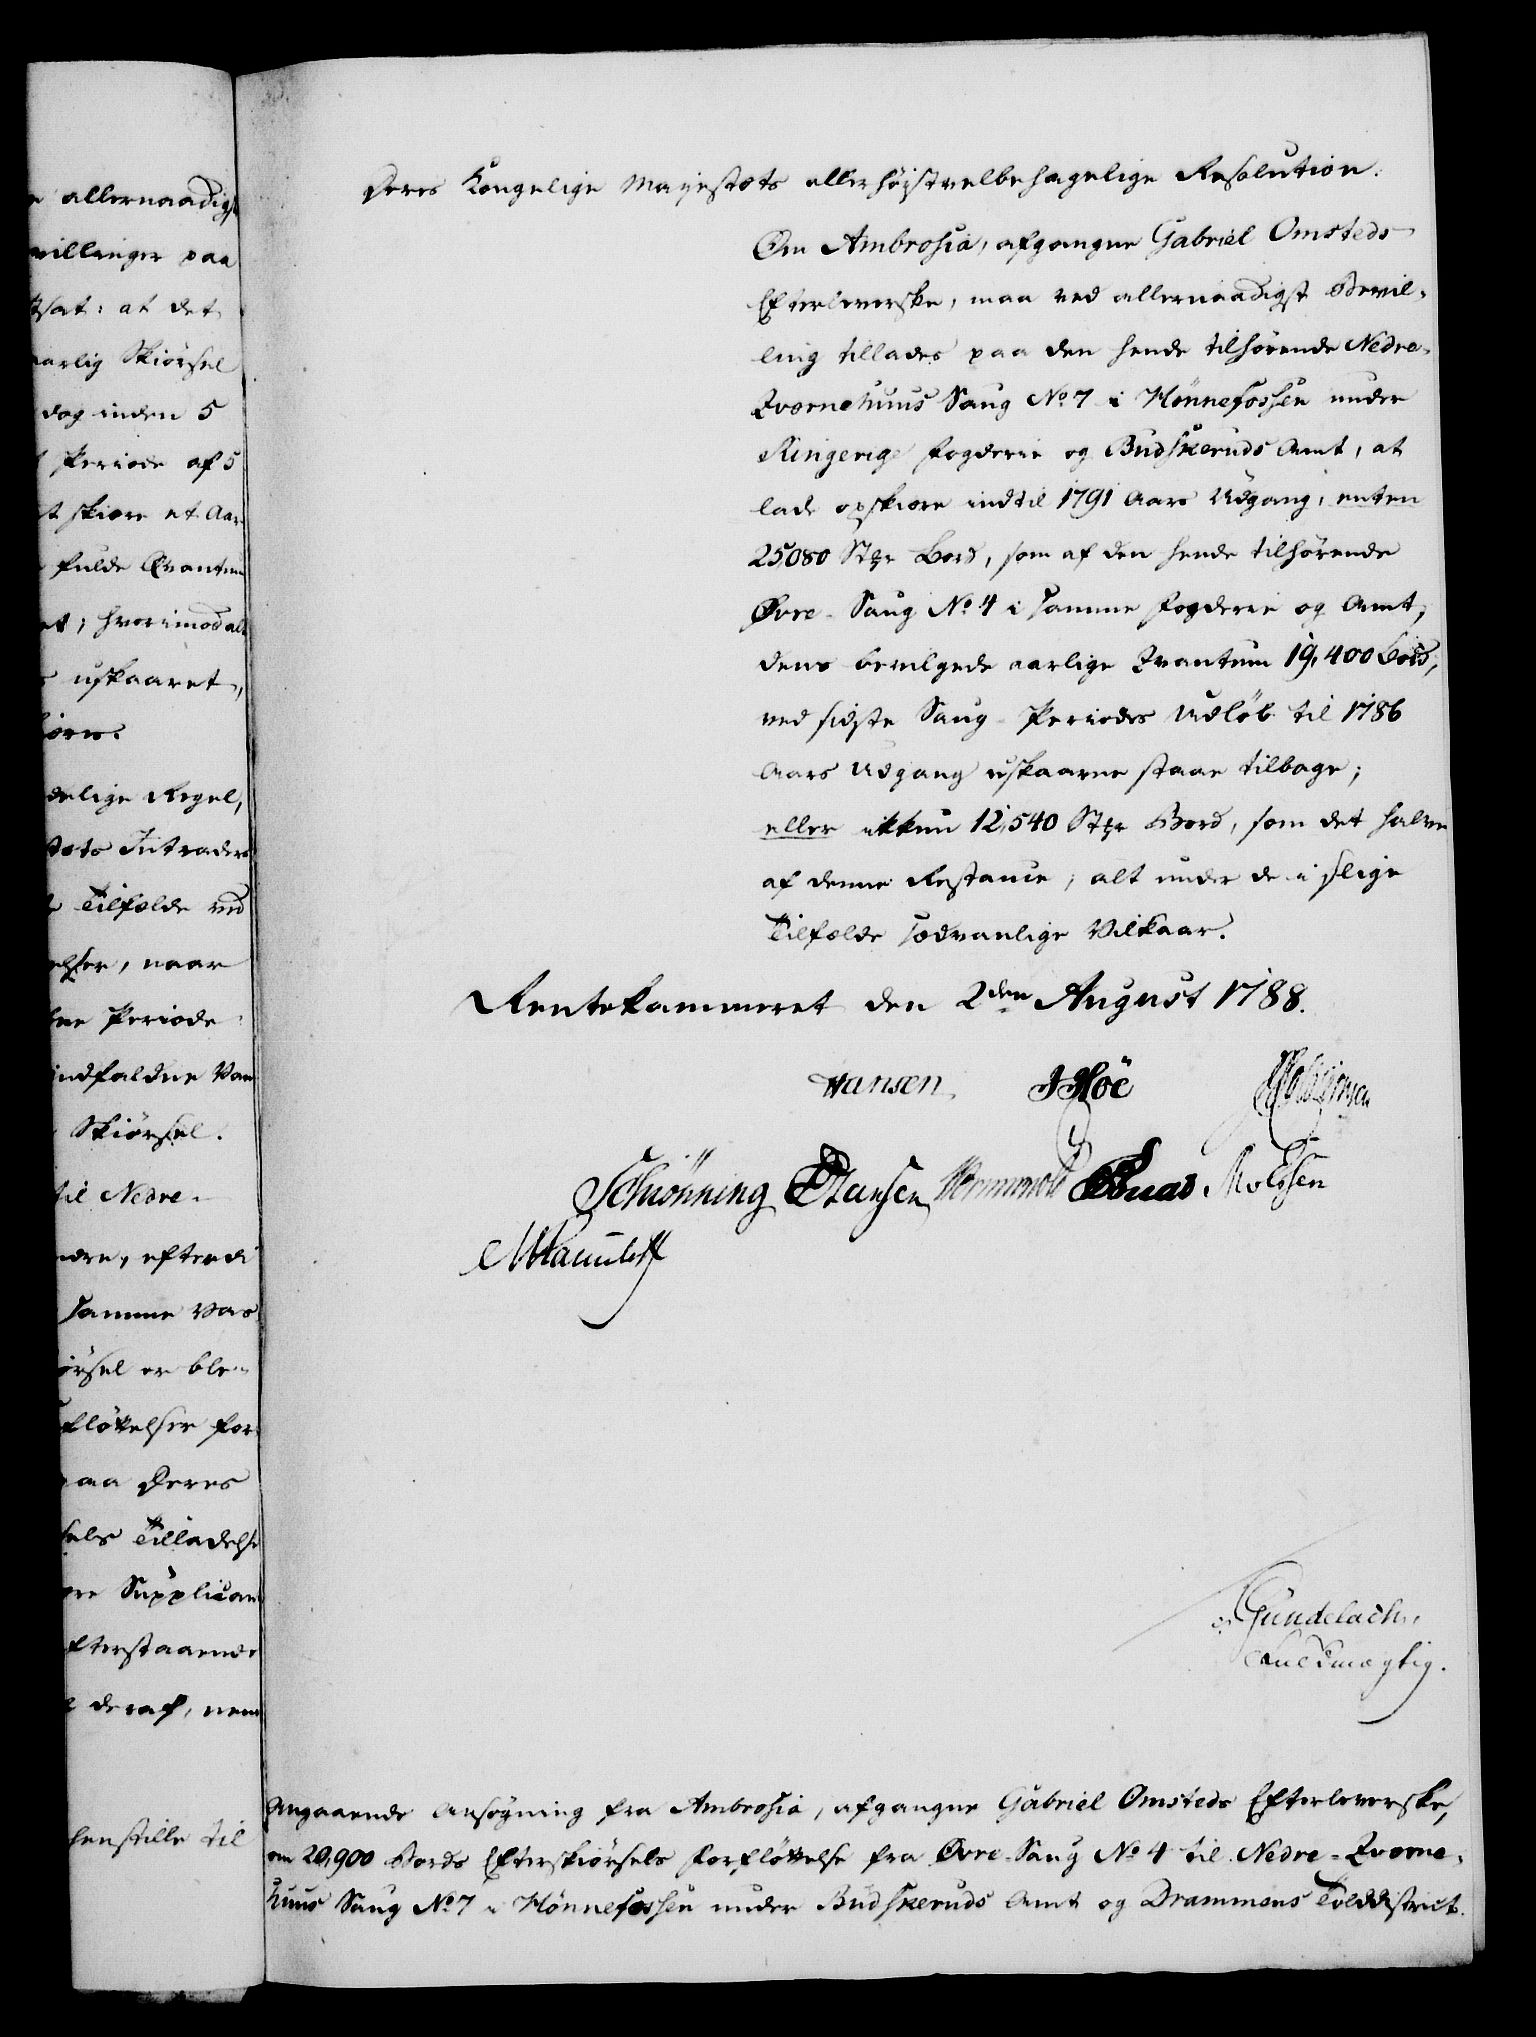 e allernaadigst
villinger paa
tsat: at det
aarlig Skiørsel
dog inden 5
Periode af 5
skiære et Aar
fulde Qvantum
et; hvorimod alt
uskaaret,
delige Regel,
Intrader
Tilfælde ved
elser, naar
Periode
indfaldne Van
Skiørsel.
til Nedre-
ndre, efterdi
samme Vas
ørsel er ble-
fløttelser for
paa Deres
Tilladelse
Supplican
fterstaaende
deraf, nem
henstille til
Deres Kongelige Majestæts allerhøjstvelbehagelige Resolution.
Om Ambrosia, afgangne Gabriel Omsteds
Efterleverske, maa ved allernaadigst Bevil-
ling tillades paa den hende tilhørende Nedre-
Qvernehuus Saug No 7 i Hønnefossen under
Ringerige Fogderie og Budskeruds Amt, at
lade opskiære indtil 1791 Aars Udgang, enten
25,080 Stkr Bord, som af den hende tilhørende
Øvre-Saug No 4 i samme Fogderie og Amt,
dens bevilgede aarlige Qvantum 19,400 Bord,
ved sidste Saug-Periodes Udløb til 1786
Aars Udgang uskaarne staae tilbage;
eller ikkun 12,540 Stkr Bord, som det halve
af denne Restance, alt under de i slige
Tilfælde sædvanlige Vilkaar.
Rentekammeret den 2den August 1788.
Hansen. JHoë
Schiönning Hansen
Gundelach,
Angaaende Ansøgning fra Ambrosia, afgangne Gabriel Omsteds Efterleverske,
om 20,900 Bords Efterskiørsels Forfløttelse fra Øvre-Saug No 4 til Nedre-Qverne-
huus Saug No 7 i Hønnefossen under Budskeruds Amt og Drammens Tolddistrict.